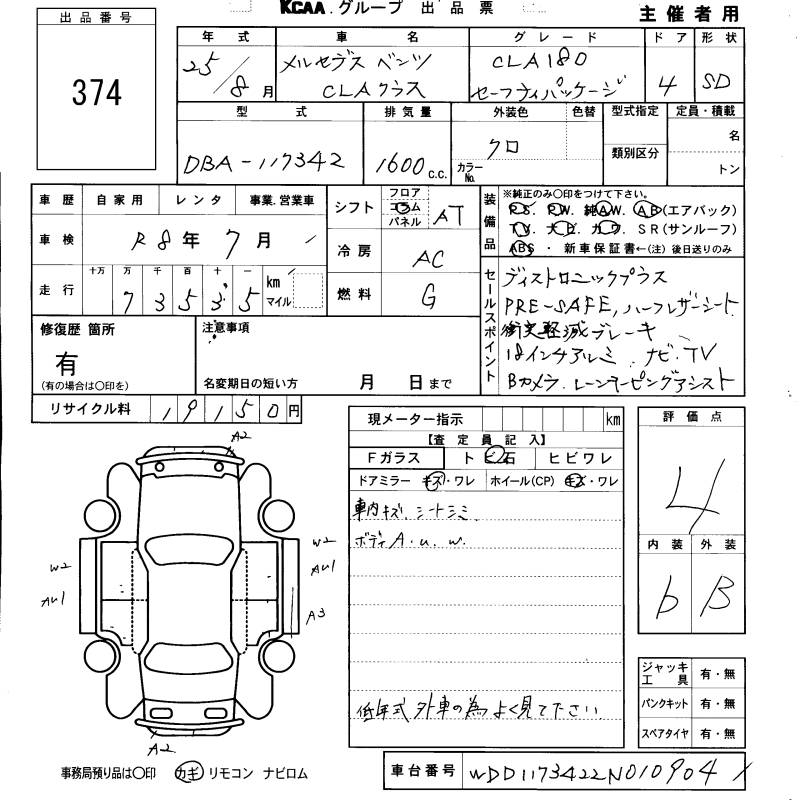 KCAA.グループ 出品票
主催者用
出品番号
374
年式 車名 グレード ドア 形状
25/8月 メルセデス ベンツ CLAクラス CLA180 セーフティパッケージ 4 SD
型式 排気量 外装色 色替 型式指定 定員・積載
DBA-117342 1600c.c. クロ カラーNo. 類別区分 名 トン
車歴 自家用 レンタ 事業.営業車
車検 R8年7月
走行 十万 万 千 百 十 一 km マイル
73535
シフト フロア コラム パネル AT
冷房 AC
燃料 G
装備品 ※純正のみ○印をつけて下さい。
P.S. P.W. 純A.W. A.B(エアバック)
T.V. ナビ. カワ. SR(サンルーフ)
ABS ・ 新車保証書←(注)後日送りのみ
セールスポイント
ディストロニックプラス
PRE-SAFE, ハーフレザーシート
衝突軽減ブレーキ
18インチアルミ. ナビ.TV
Bカメラ. レーンキーピングアシスト
修復歴 箇所
有
(有の場合は○印を)
注意事項
名変期日の短い方 月 日まで
リサイクル料 19150円
現メーター指示 km
【査定員記入】
Fガラス トビ石 ヒビワレ
ドアミラー キズ・ワレ ホイール(CP) キズ・ワレ
車内キズ. シートシミ.
ボディA.u.w.
低年式 外車の為 よく見て下さい.
評価点
4
内装 外装
b B
ジャッキ工具 有・無
パンクキット 有・無
スペアタイヤ 有・無
A2
W2
AU1
W2
AU1
A3
A2
事務局預り品は○印 カギ リモコン ナビロム
車台番号 WDD1173422N010904